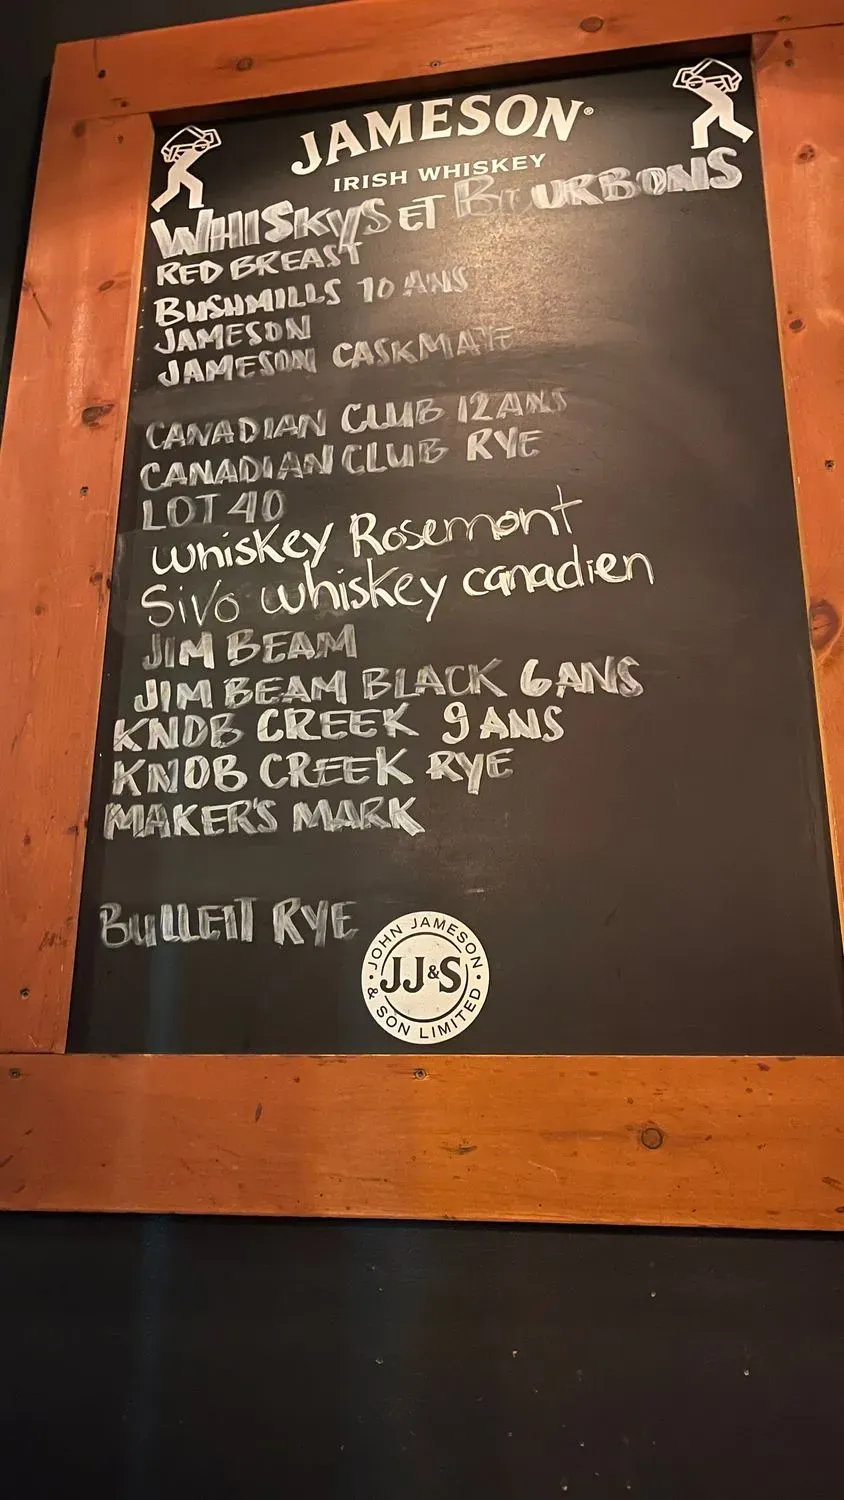 JAMESON®
IRISH WHISKEY
WHISKYS ET BOURBONS
RED BREAST
BUSHMILLS 10 ANS
JAMESON
JAMESON CASKMATE
CANADIAN CLUB 12 ANS
CANADIAN CLUB RYE
LOT 40
whiskey Rosemont
Sivo whiskey canadien
JIM BEAM
JIM BEAM BLACK 6 ANS
KNOB CREEK 9 ANS
KNOB CREEK RYE
MAKER'S MARK
BULLEIT RYE
JOHN JAMESON
JJ&S
& SON LIMITED